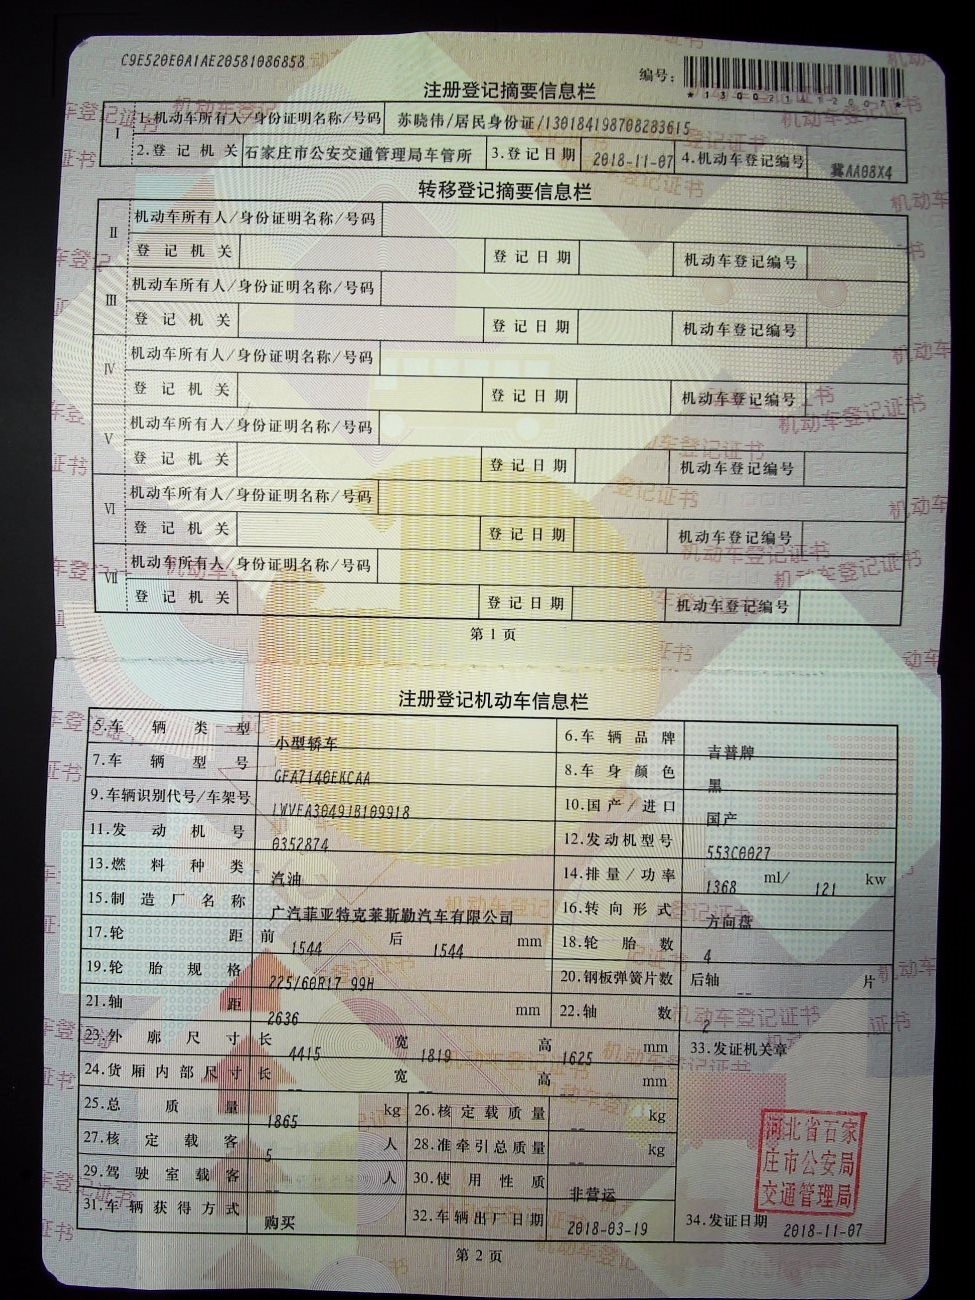 C9E520E0A1AE20581086858
编号:
注册登记摘要信息栏
I 1.机动车所有人/身份证明名称/号码 苏晓伟/居民身份证/130184198708283615
2.登记机关 石家庄市公安交通管理局车管所 3.登记日期 2018-11-07 4.机动车登记编号 冀AA08X4
转移登记摘要信息栏
II 机动车所有人/身份证明名称/号码
登记机关 登记日期 机动车登记编号
III 机动车所有人/身份证明名称/号码
登记机关 登记日期 机动车登记编号
IV 机动车所有人/身份证明名称/号码
登记机关 登记日期 机动车登记编号
V 机动车所有人/身份证明名称/号码
登记机关 登记日期 机动车登记编号
VI 机动车所有人/身份证明名称/号码
登记机关 登记日期 机动车登记编号
VII 机动车所有人/身份证明名称/号码
登记机关 登记日期 机动车登记编号
第1页
注册登记机动车信息栏
5.车辆类型 小型轿车 6.车辆品牌 吉普牌
7.车辆型号 GFA7140EKCAA 8.车身颜色 黑
9.车辆识别代号/车架号 LWVEA3049JB109918 10.国产/进口 国产
11.发动机号 0352874 12.发动机型号 553C0027
13.燃料种类 汽油 14.排量/功率 1368 ml/ 121 kw
15.制造厂名称 广汽菲亚特克莱斯勒汽车有限公司 16.转向形式 方向盘
17.轮距 前 1544 后 1544 mm 18.轮胎数 4
19.轮胎规格 225/60R17 99H 20.钢板弹簧片数 后轴 -- 片
21.轴距 2636 mm 22.轴数 2
23.外廓尺寸 长 4415 宽 1819 高 1625 mm 33.发证机关章
24.货厢内部尺寸 长 -- 宽 -- 高 -- mm
25.总质量 1865 kg 26.核定载质量 -- kg
27.核定载客 5 人 28.准牵引总质量 -- kg
29.驾驶室载客 -- 人 30.使用性质 非营运
31.车辆获得方式 购买 32.车辆出厂日期 2018-03-19 34.发证日期 2018-11-07
河北省石家
庄市公安局
交通管理局
第2页